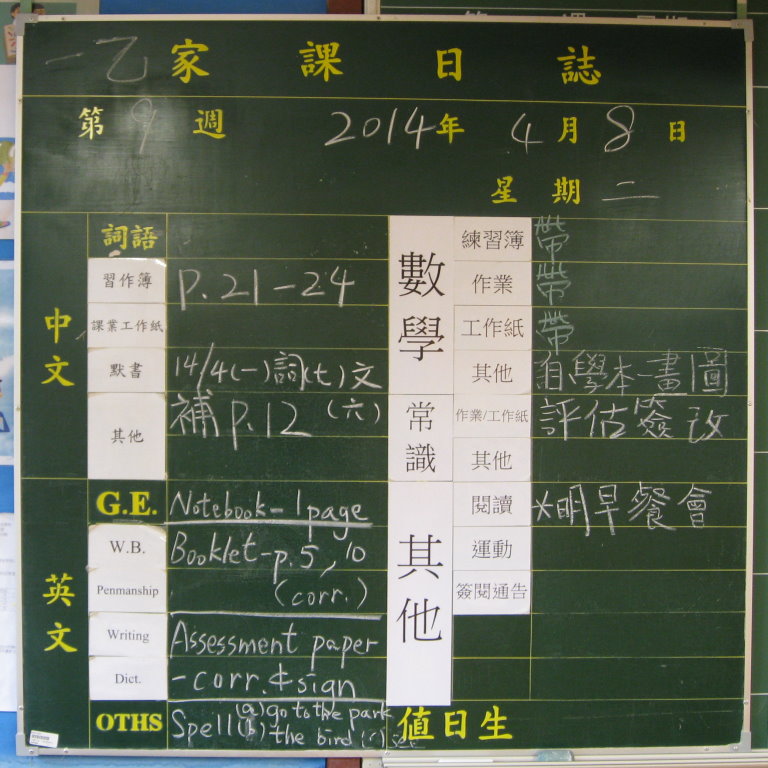 一乙家課日誌
第9週 2014年4月8日
星期二
中文
詞語
習作簿 P.21-24
課業工作紙
默書 14/4(一)詞(七)文
其他 補P.12(六)
英文
G.E. Notebook-1page
W.B. Booklet-p.5,10
Penmanship (corr.)
Writing Assessment paper
Dict. -corr.&sign
OTHS Spell(a)go to the park
(b) the bird (c) see
數學
練習簿 帶
作業 帶
工作紙 帶
其他 自學本-畫圖
常識
作業/工作紙 評估簽改
其他
其他
閱讀 *明早餐會
運動
簽閱通告
值日生